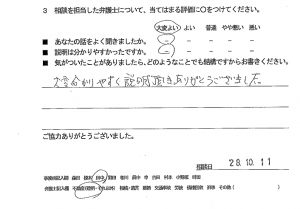 3 相談を担当した弁護士について、当てはまる評価に○をつけてください。
大変よい よい 普通 やや悪い 悪い
■ あなたの話をよく聞きましたか。
■ 説明は分かりやすかったですか。
■ 気がついたことがありましたら、どのようなことでも結構ですからお書きください。
大変分かりやすく説明頂きありがとうございました。
ご協力ありがとうございました。
相談日 28.10.11